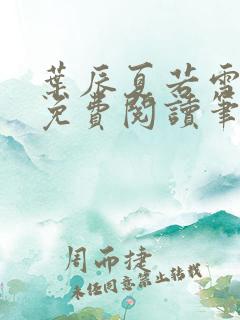 葉辰夏若雪
免費閱讀筆
周而捷
未經同意禁止轉載